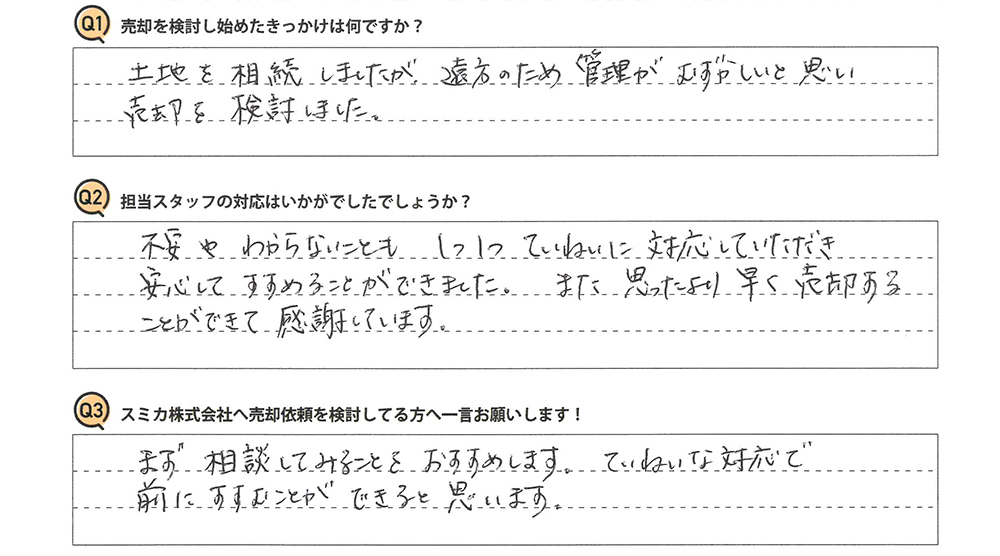 Q1 売却を検討し始めたきっかけは何ですか？
土地を相続しましたが、遠方のため管理がむずかしいと思い
売却を検討しました。
Q2 担当スタッフの対応はいかがでしたでしょうか？
不安やわからないことも 1つ1つていねいに対応していただき
安心してすすめることができました。 また思ったより早く売却する
ことができて感謝しています。
Q3 スミカ株式会社へ売却依頼を検討してる方へ一言お願いします！
まず相談してみることをおすすめします。ていねいな対応で
前にすすむことができると思います。